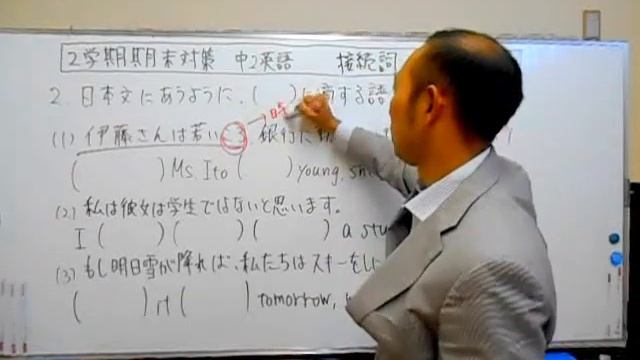 2学期期末対策 中2英語 接続詞
2. 日本文にあうように、( )に適する語
(1) 伊藤さんは若いころ、銀行に勤
時
( ) Ms. Ito ( ) young, she
(2) 私は彼女は学生ではないと思います。
I ( ) ( ) ( ) a stu
(3) もし明日雪が降れば、私たちはスキーをしに
( ) it ( ) tomorrow,